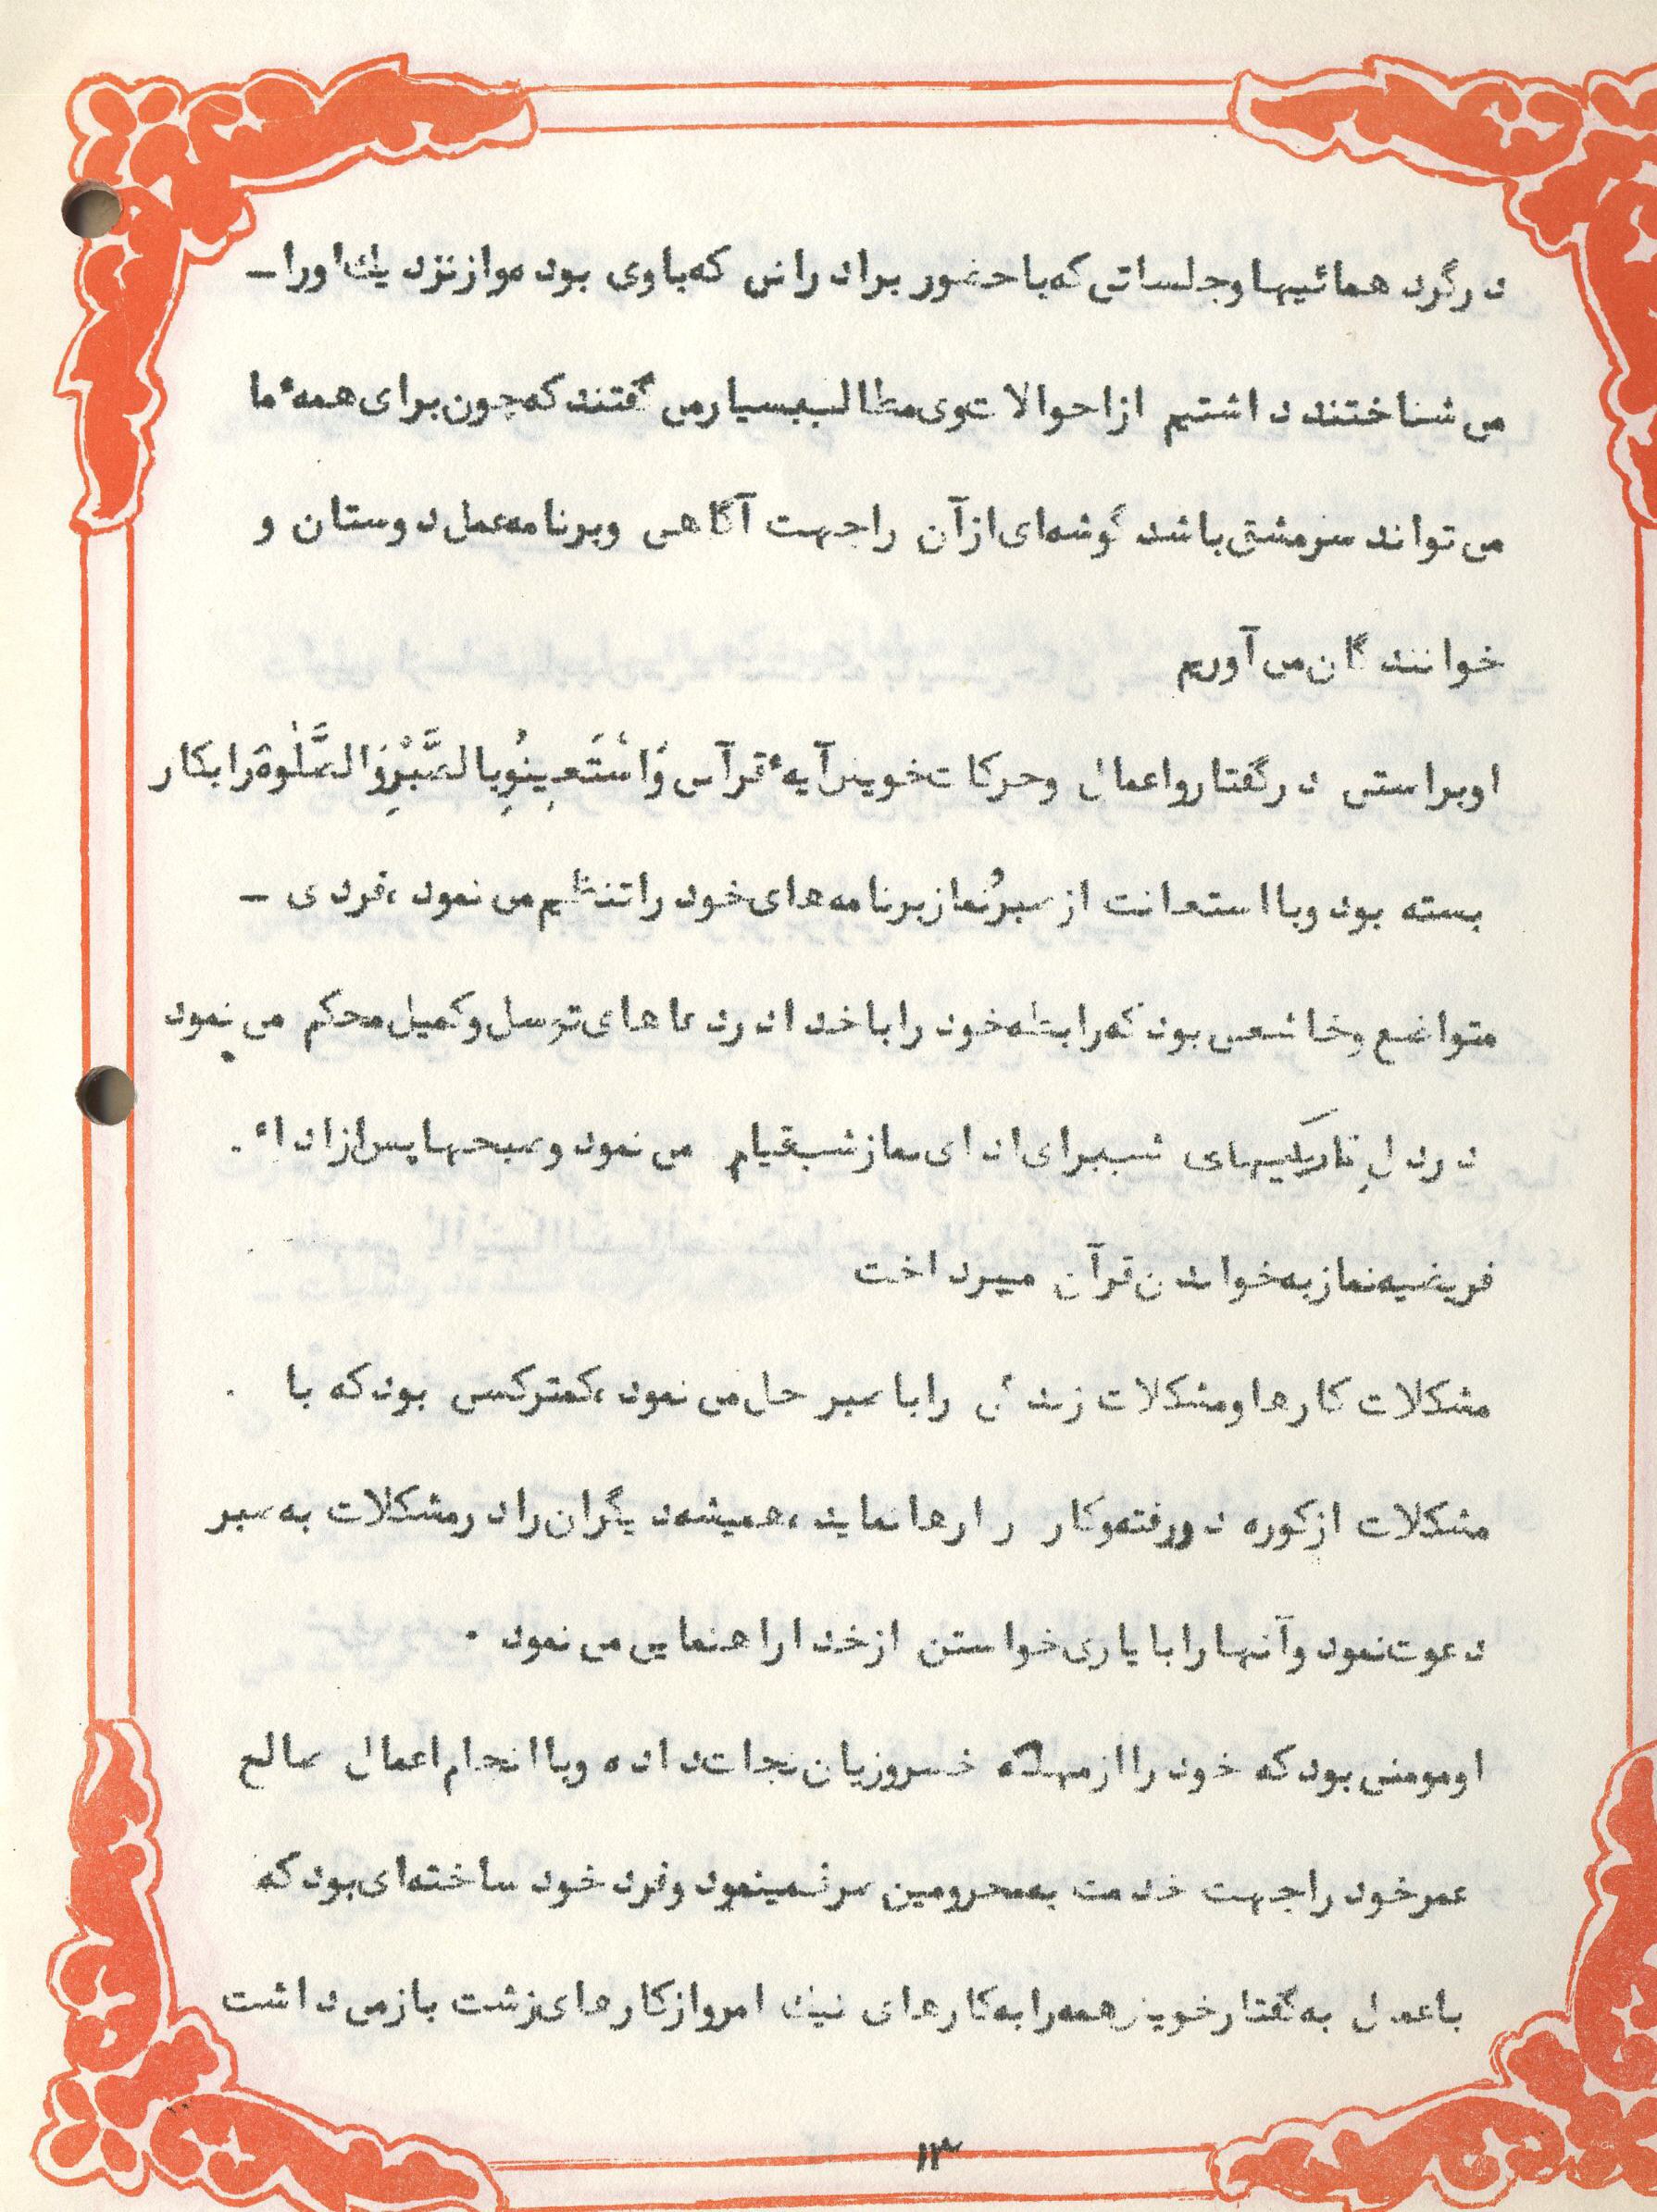 در گرد همائیها و جلساتی که با حضور برادرانی که با وی بود مو از نزدیك او را –
می شناختند داشتیم از احوالات وی مطالب بسیار می گفتند که چون برای همهٔ ما
می تواند سرمشقی باشد گوشه‌ای از آن را جهت آگاهی و برنامه عمل دوستان و
خوانندگان می آوریم
او براستی در گفتار و اعمال و حرکات خویش آیهٔ قرآنی وَاسْتَعِینُوِ بالصَّبْرِ وَالصَّلٰوة را بکار
بسته بود و با استعانت از صبرُ نماز برنامه های خود را تنظیم می نمود ، فردی –
متواضع و خاشعی بود که رابطه خود را با خدا در دعاهای توسل و کمیل محکم می نمود
در دلِ تاریکیهای شب برای ادای نماز شب قیام می نمود و صبحها پس از اداء .
فریضیه نماز به خواندن قرآن میپرداخت
مشکلات کارها و مشکلات زندگی را با صبر حل می نمود ، کمتر کسی بود که با .
مشکلات از کوره در رفته و کار را رها نماید ، همیشه دیگران را در مشکلات به صبر
دعوت نمود و آنها را با یاری خواستن از خدا راهنمایی می نمود .
او مومنی بود که خود را از مهلکه خسر و زیان نجات داده و با انجام اعمال صالح
عمر خود را جهت خدمت به محرومین صرف مینمود و فرد خود ساخته‌ای بود که
با عمل به گفتار خویش همه را به کارهای نیك امر و از کارهای زشت باز می داشت
۱۳